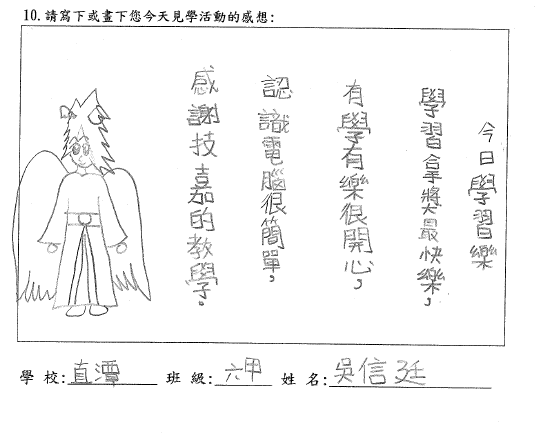 10.請寫下或畫下您今天見學活動的感想:
今日學習樂
學習拿獎大最快樂,
有學有樂很開心,
認識電腦很簡單,
感謝技嘉的教學。
學校:直潭 班級:六甲 姓名:吳信廷